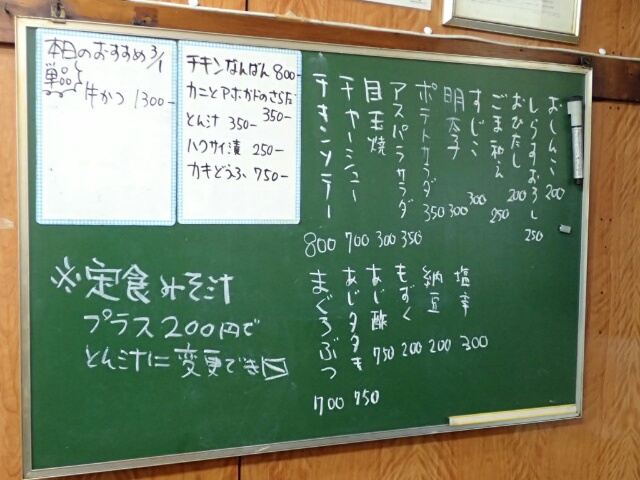 本日のおすすめ 3/1
単品
牛かつ 1300-
チキンなんばん 800-
カニとアボカドのさらだ 350-
とん汁 350-
ハクサイ漬 250-
カキどうふ 750-
おしんこ 200
しらすおろし 250
おひたし 200
ごま和え 250
すじこ 300
明太子 300
ポテトサラダ 350
アスパラサラダ 350
目玉焼 300
チャーシュー 700
チキンソテー 800
塩辛 300
納豆 200
もずく 200
あじ酢 750
あじタタキ 750
まぐろぶつ 700
※定食みそ汁
プラス200円で
とん汁に変更でき〼